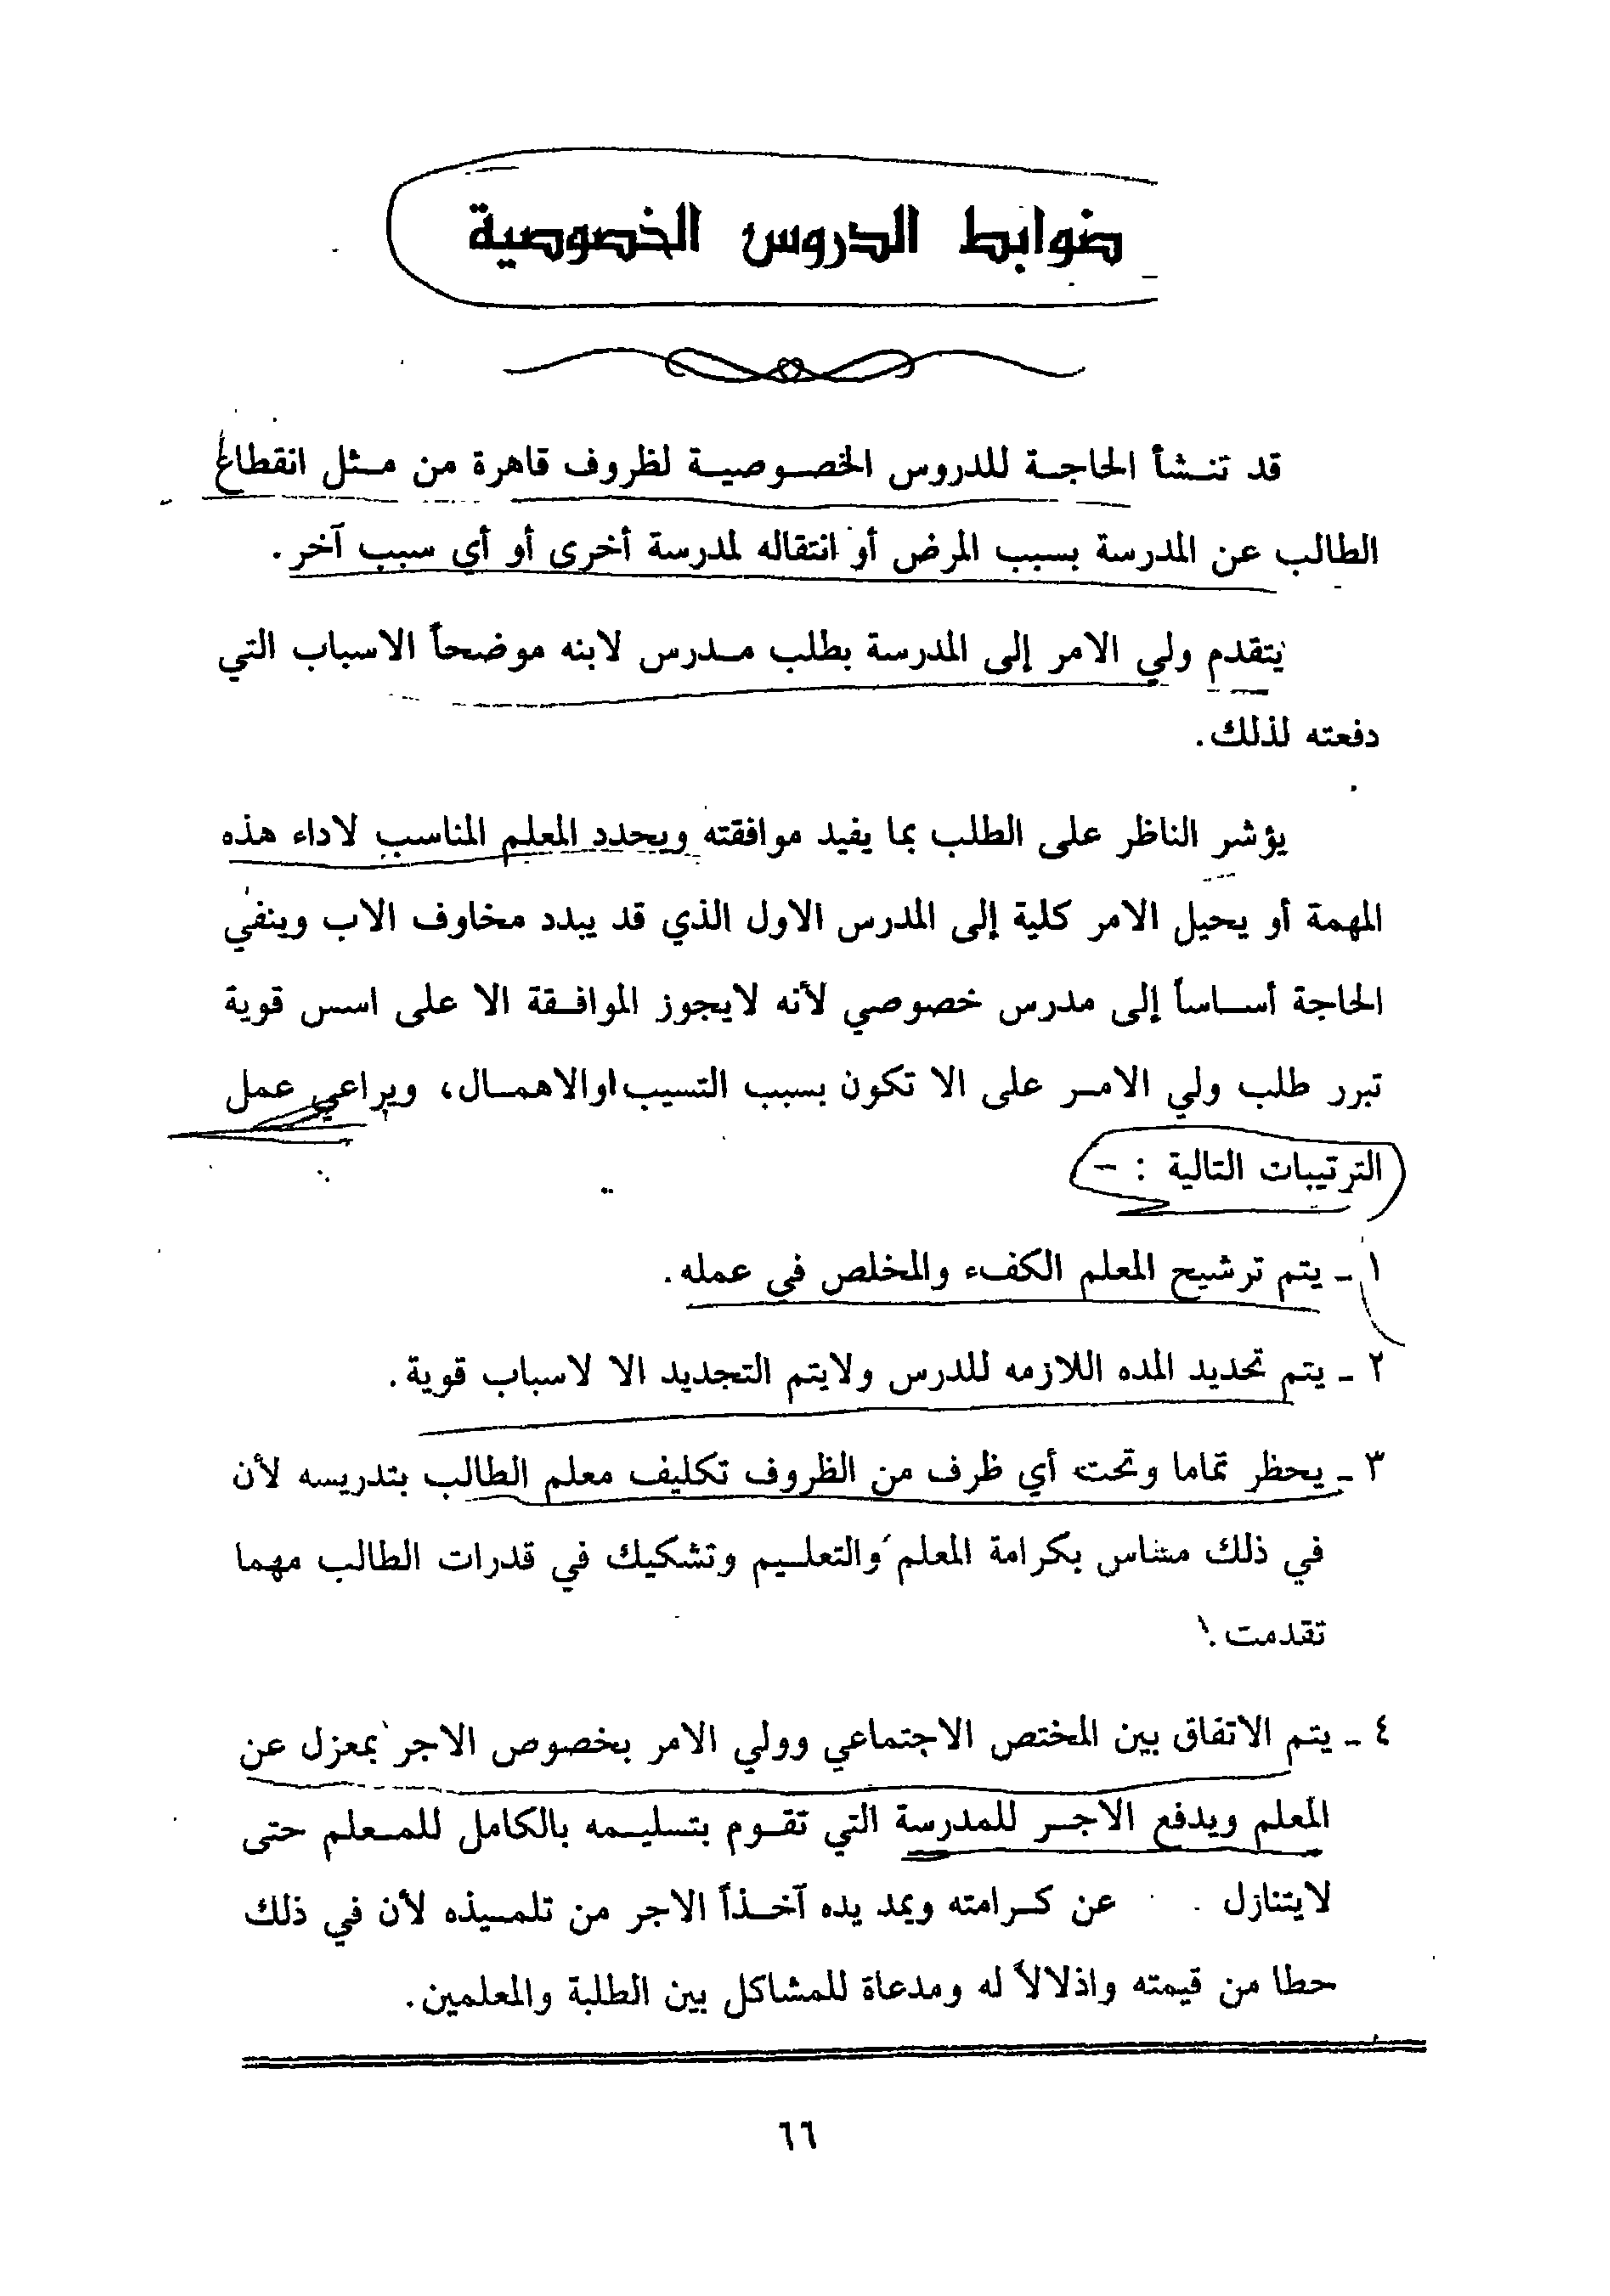 ضوابط الدروس الخصوصية
قد تنشأ الحاجة للدروس الخصوصية لظروف قاهرة من مثل انقطاع
الطالب عن المدرسة بسبب المرض أو انتقاله لمدرسة أخرى أو أي سبب آخر.
يتقدم ولي الامر إلى المدرسة بطلب مدرس لابنه موضحاً الاسباب التي
دفعته لذلك.
يؤشر الناظر على الطلب بما يفيد موافقته ويحدد المعلم المناسب لاداء هذه
المهمة أو يحيل الامر كلية إلى المدرس الاول الذي قد يبدد مخاوف الاب وينفي
الحاجة أساساً إلى مدرس خصوصي لأنه لايجوز الموافقة الا على اسس قوية
تبرر طلب ولي الامر على الا تكون بسبب التسيب اوالاهمال، ويراعي عمل
الترتيبات التالية : –
١ - يتم ترشيح المعلم الكفء والمخلص في عمله.
٢ - يتم تحديد المده اللازمه للدرس ولايتم التجديد الا لاسباب قوية.
٣ - يحظر تماما وتحت أي ظرف من الظروف تكليف معلم الطالب بتدريسه لأن
في ذلك مساس بكرامة المعلم والتعليم وتشكيك في قدرات الطالب مهما
تقدمت.
٤ - يتم الاتفاق بين المختص الاجتماعي وولي الامر بخصوص الاجر بمعزل عن
المعلم ويدفع الاجر للمدرسة التي تقوم بتسليمه بالكامل للمعلم حتى
لايتنازل عن كرامته ويمد يده آخذاً الاجر من تلميذه لأن في ذلك
حطا من قيمته واذلالاً له ومدعاة للمشاكل بين الطلبة والمعلمين.
٦٦